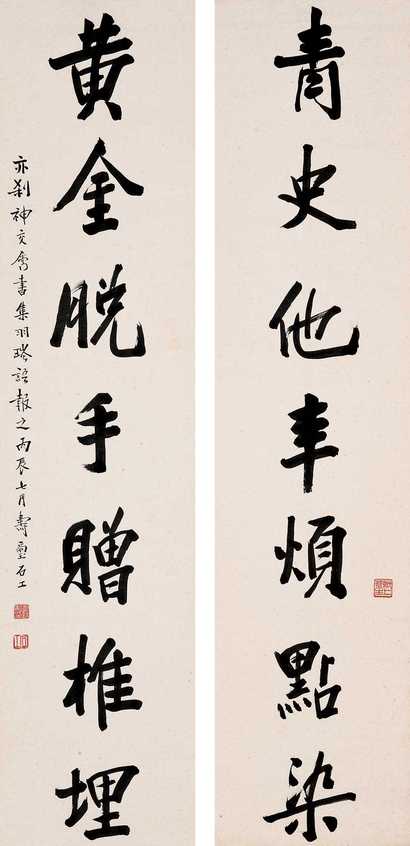 青史他年煩點染
黄金脱手贈椎埋
亦刹神交屬書集羽琌語報之丙辰七月壽璽石工